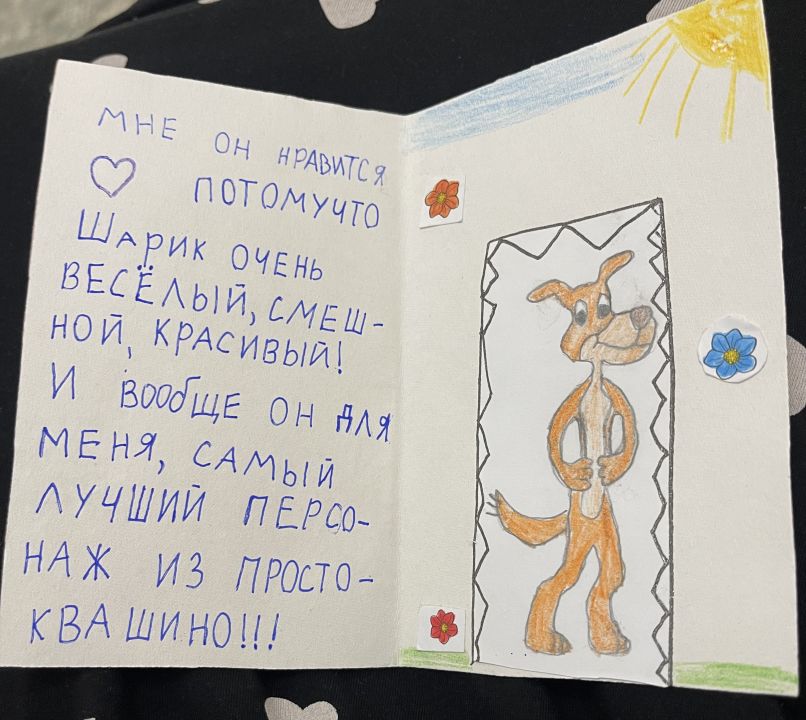 МНЕ ОН НРАВИТСЯ
ПОТОМУЧТО
ШАРИК ОЧЕНЬ
ВЕСЁЛЫЙ, СМЕШ-
НОЙ, КРАСИВЫЙ!
И ВООбЩЕ ОН ДЛЯ
МЕНЯ, САМЫЙ
ЛУЧШИЙ ПЕРСО-
НАЖ ИЗ ПРОСТО-
КВАШИНО!!!